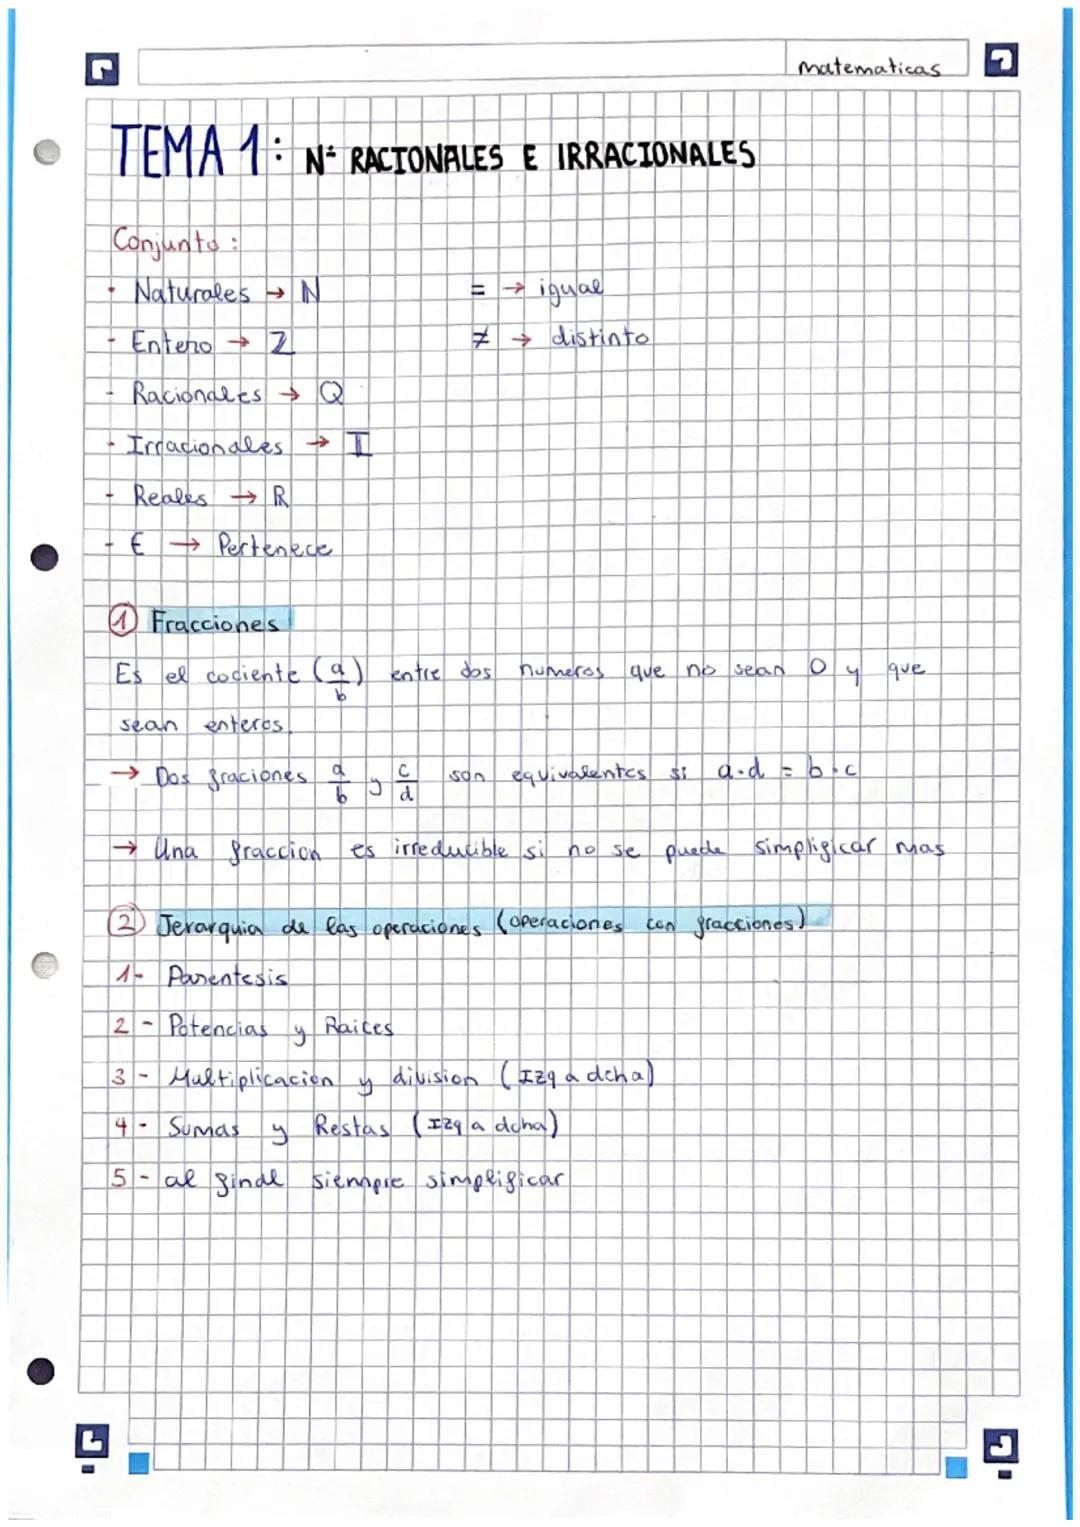 matematicas
TEMA 1: Nº RACIONALES E IRRACIONALES
Conjunto:
- Naturales → ℕ
= → igual
- Entero → ℤ
≠ → distinto
- Racionales → Q
- Irracionales → 𝕀
- Reales → ℝ
- € → Pertenece
① Fracciones
Es el cociente (a/b) entre dos numeros que no sean 0 y que
sean enteros.
→ Dos fraciones a/b y c/d son equivalentes si a·d = b·c
→ Una fraccion es irreducible si no se puede simplificar mas
② Jerarquia de las operaciones (operaciones con fracciones)
1- Parentesis
2- Potencias y Raices
3- Multiplicacion y division (Izq a dcha)
4- Sumas y Restas (Izq a dcha)
5- al final siempre simplificar